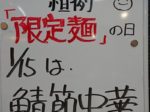 「限定麺」の日
1/15は.
鯖節中華